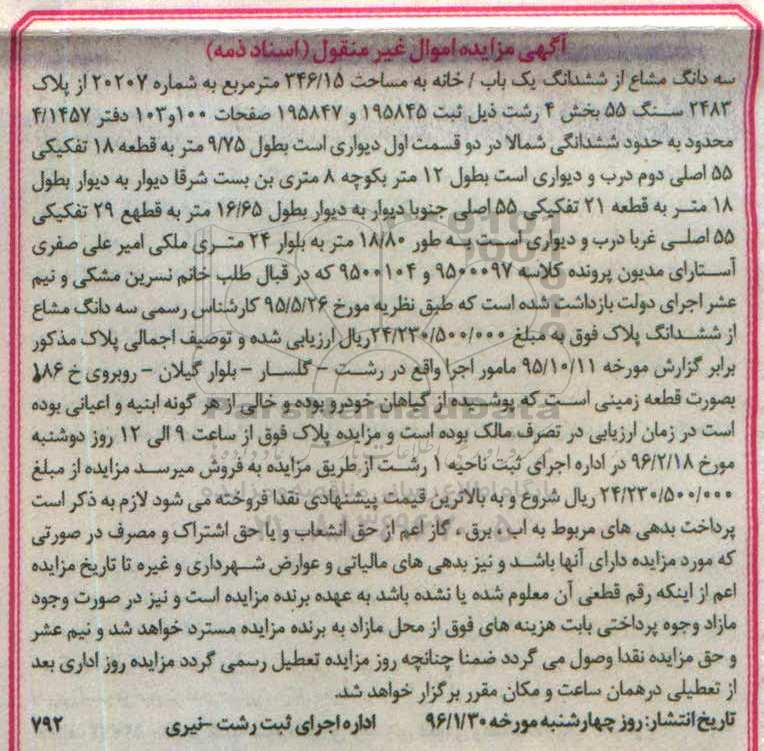 آگهی مزایده اموال غیر منقول (اسناد ذمه)
سه دانگ مشاع از ششدانگ یک باب / خانه به مساحت ۳۴۶/۱۵ مترمربع به شماره ۲۰۲۰۷ از پلاک
۲۴۸۳ سنگ ۵۵ بخش ۴ رشت ذیل ثبت ۱۹۵۸۴۵ و ۱۹۵۸۴۷ صفحات ۱۰۰و۱۰۳ دفتر ۴/۱۴۵۷
محدود به حدود ششدانگی شمالا در دو قسمت اول دیواری است بطول ۹/۷۵ متر به قطعه ۱۸ تفکیکی
۵۵ اصلی دوم درب و دیواری است بطول ۱۲ متر بکوچه ۸ متری بن بست شرقا دیوار به دیوار بطول
۱۸ متر به قطعه ۲۱ تفکیکی ۵۵ اصلی جنوبا دیوار به دیوار بطول ۱۶/۶۵ متر به قطهع ۲۹ تفکیکی
۵۵ اصلی غربا درب و دیواری است به طور ۱۸/۸۰ متر به بلوار ۲۴ متری ملکی امیر علی صفری
آستارای مدیون پرونده کلاسه ۹۵۰۰۰۹۷ و ۹۵۰۰۱۰۴ که در قبال طلب خانم نسرین مشکی و نیم
عشر اجرای دولت بازداشت شده است که طبق نظریه مورخ ۹۵/۵/۲۶ کارشناس رسمی سه دانگ مشاع
از ششدانگ پلاک فوق به مبلغ ۲۴/۲۳۰/۵۰۰/۰۰۰ریال ارزیابی شده و توصیف اجمالی پلاک مذکور
برابر گزارش مورخه ۹۵/۱۰/۱۱ مامور اجرا واقع در رشت – گلسار – بلوار گیلان – روبروی خ ۱۸۶
بصورت قطعه زمینی است که پوشیده از گیاهان خودرو بوده و خالی از هر گونه ابنیه و اعیانی بوده
است در زمان ارزیابی در تصرف مالک بوده است و مزایده پلاک فوق از ساعت ۹ الی ۱۲ روز دوشنبه
مورخ ۹۶/۲/۱۸ در اداره اجرای ثبت ناحیه ۱ رشت از طریق مزایده به فروش میرسد مزایده از مبلغ
۲۴/۲۳۰/۵۰۰/۰۰۰ ریال شروع و به بالاترین قیمت پیشنهادی نقدا فروخته می شود لازم به ذکر است
پرداخت بدهی های مربوط به اب ، برق ، گاز اعم از حق انشعاب و یا حق اشتراک و مصرف در صورتی
که مورد مزایده دارای آنها باشد و نیز بدهی های مالیاتی و عوارض شهرداری و غیره تا تاریخ مزایده
اعم از اینکه رقم قطعی آن معلوم شده یا نشده باشد به عهده برنده مزایده است و نیز در صورت وجود
مازاد وجوه پرداختی بابت هزینه های فوق از محل مازاد به برنده مزایده مسترد خواهد شد و نیم عشر
و حق مزایده نقدا وصول می گردد ضمنا چنانچه روز مزایده تعطیل رسمی گردد مزایده روز اداری بعد
از تعطیلی درهمان ساعت و مکان مقرر برگزار خواهد شد.
تاریخ انتشار: روز چهارشنبه مورخه ۹۶/۱/۳۰ اداره اجرای ثبت رشت -نیری ۷۹۲